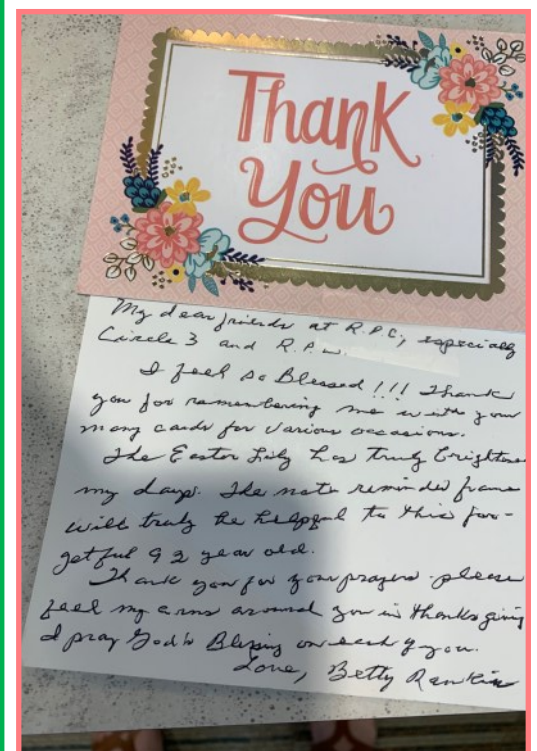 Thank
You
My dear friends at R.P.C., especially
Circle 3 and R.P.W.
I feel so Blessed!!! Thank
you for remembering me with your
many cards for various occasions.
The Easter Lily has truly brightene
my days. The note reminder frame
will truly be helpful to this for-
getful 92 year old.
Thank you for your prayers - please
feel my arms around you in thanksgiving
I pray God's Blessing on each of you.
Love, Betty Rankin